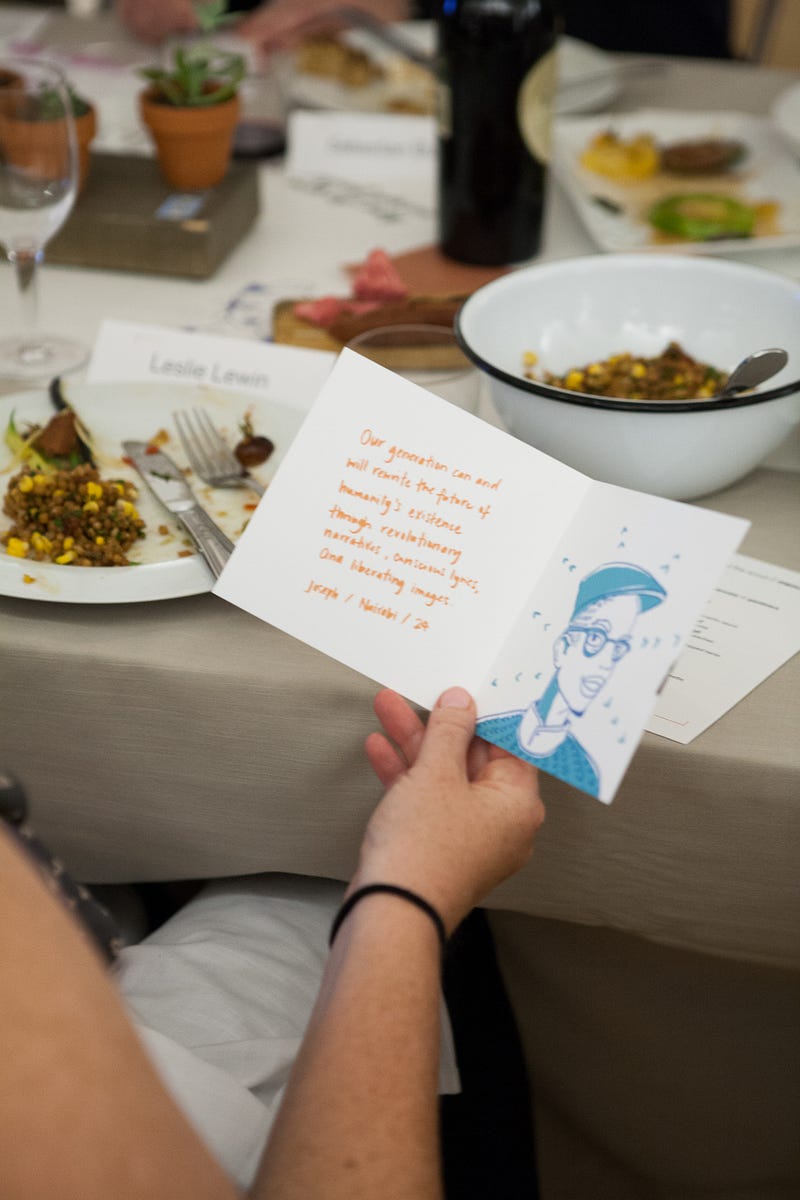 Leslie Lewin
Our generation can and
will rewrite the future of
humanity's existence
through revolutionary
narratives, conscious lyrics,
and liberating images.
Joseph / Nairobi / 24